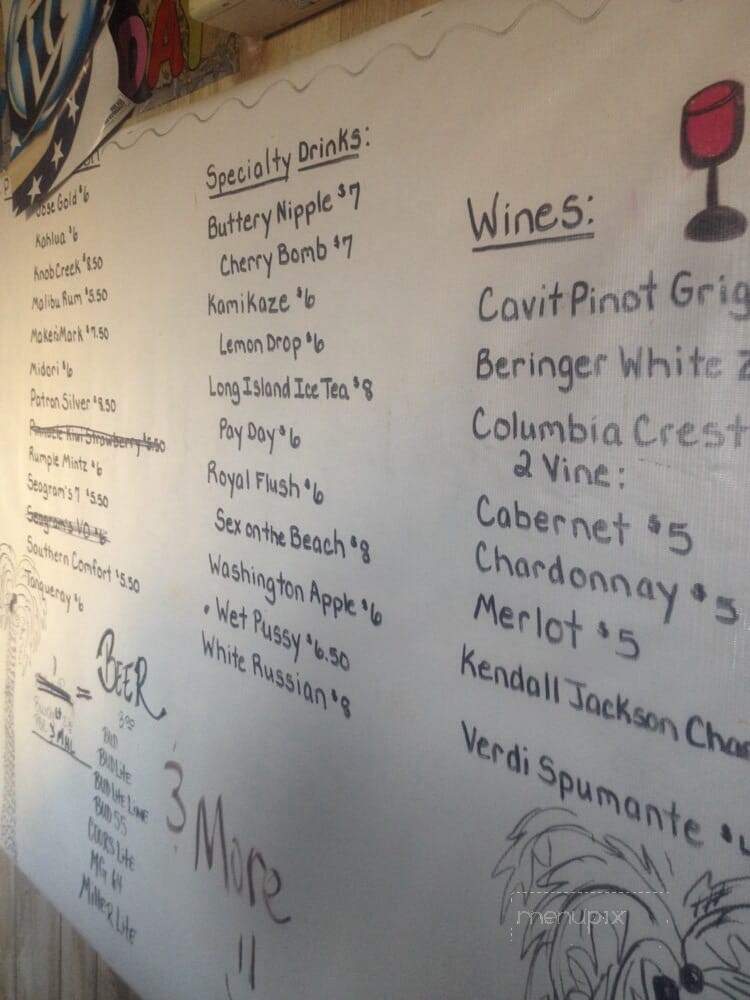 DAY
Jose Gold $6
Kahlua $6
Knob Creek $8.50
Malibu Rum $5.50
Makers Mark $7.50
Midori $6
Patron Silver $8.50
Pinnacle Kiwi Strawberry $5.50
Rumple Mintz $6
Seagram's 7 $5.50
Seagram's VO $6
Southern Comfort $5.50
Tanqueray $6
Specialty Drinks:
Buttery Nipple $7
Cherry Bomb $7
Kamikaze $6
Lemon Drop $6
Long Island Ice Tea $8
Pay Day $6
Royal Flush $6
Sex on the Beach $8
Washington Apple $6
• Wet Pussy $6.50
White Russian $8
Wines:
Cavit Pinot Grig
Beringer White Z
Columbia Crest
2 Vine:
Cabernet $5
Chardonnay $5
Merlot $5
Kendall Jackson Char
Verdi Spumante $
= BEER
BUD
BUD Lite
BUD Lite Lime
BUD 55
COORS Lite
MG 64
Miller Lite
3 More
menupix